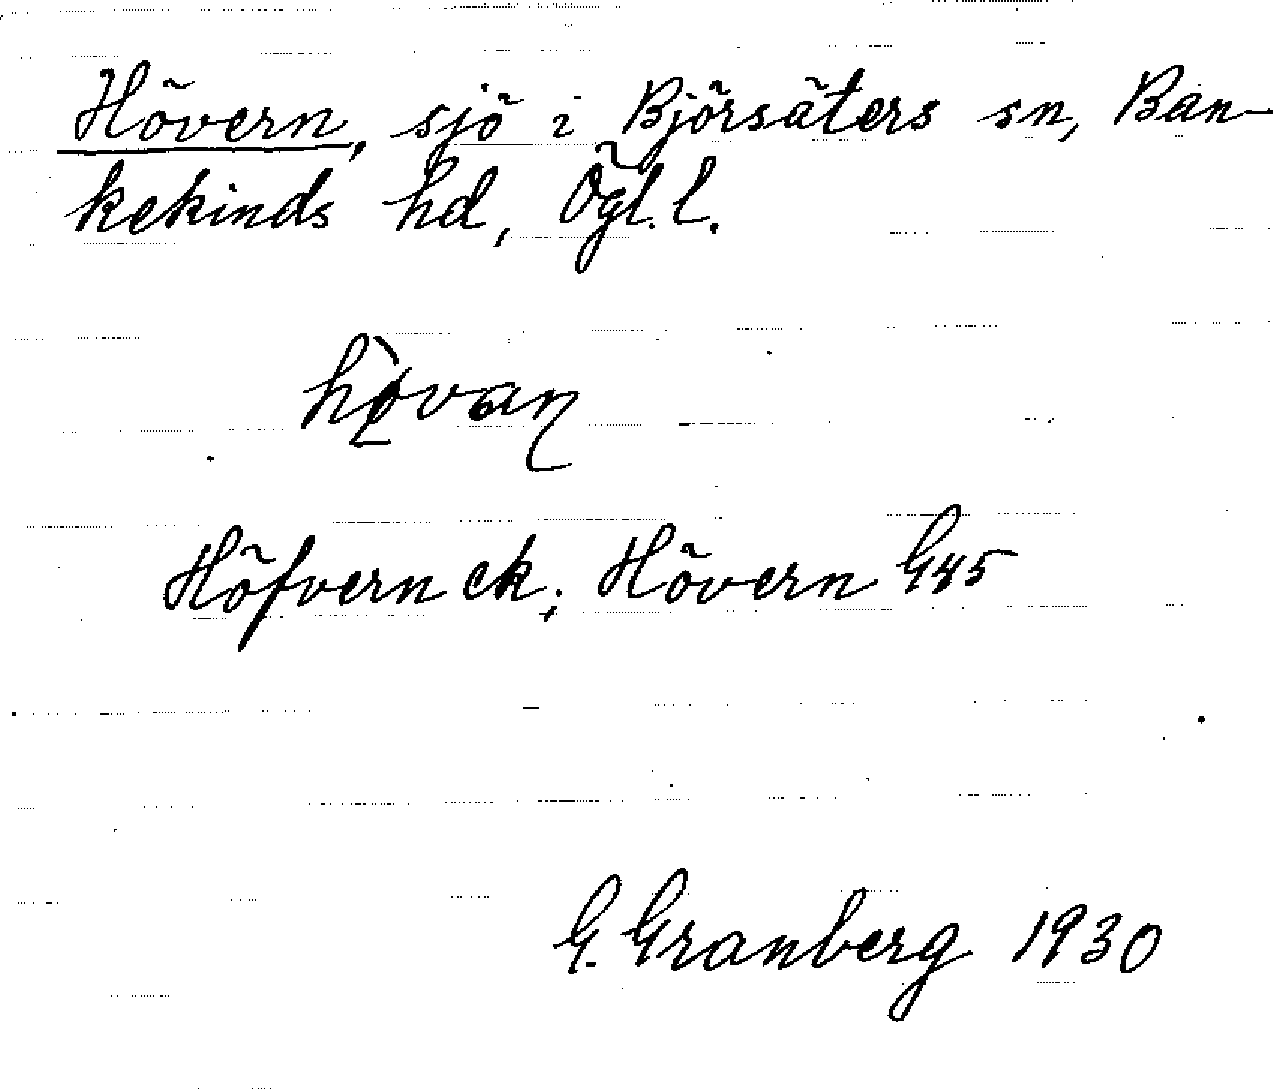 Hövern, sjö i Björsäters sn, Ban-
kekinds hd, Ögl. l.
hø̀van
Höfvern ek; Hövern G45
G. Granberg 1930